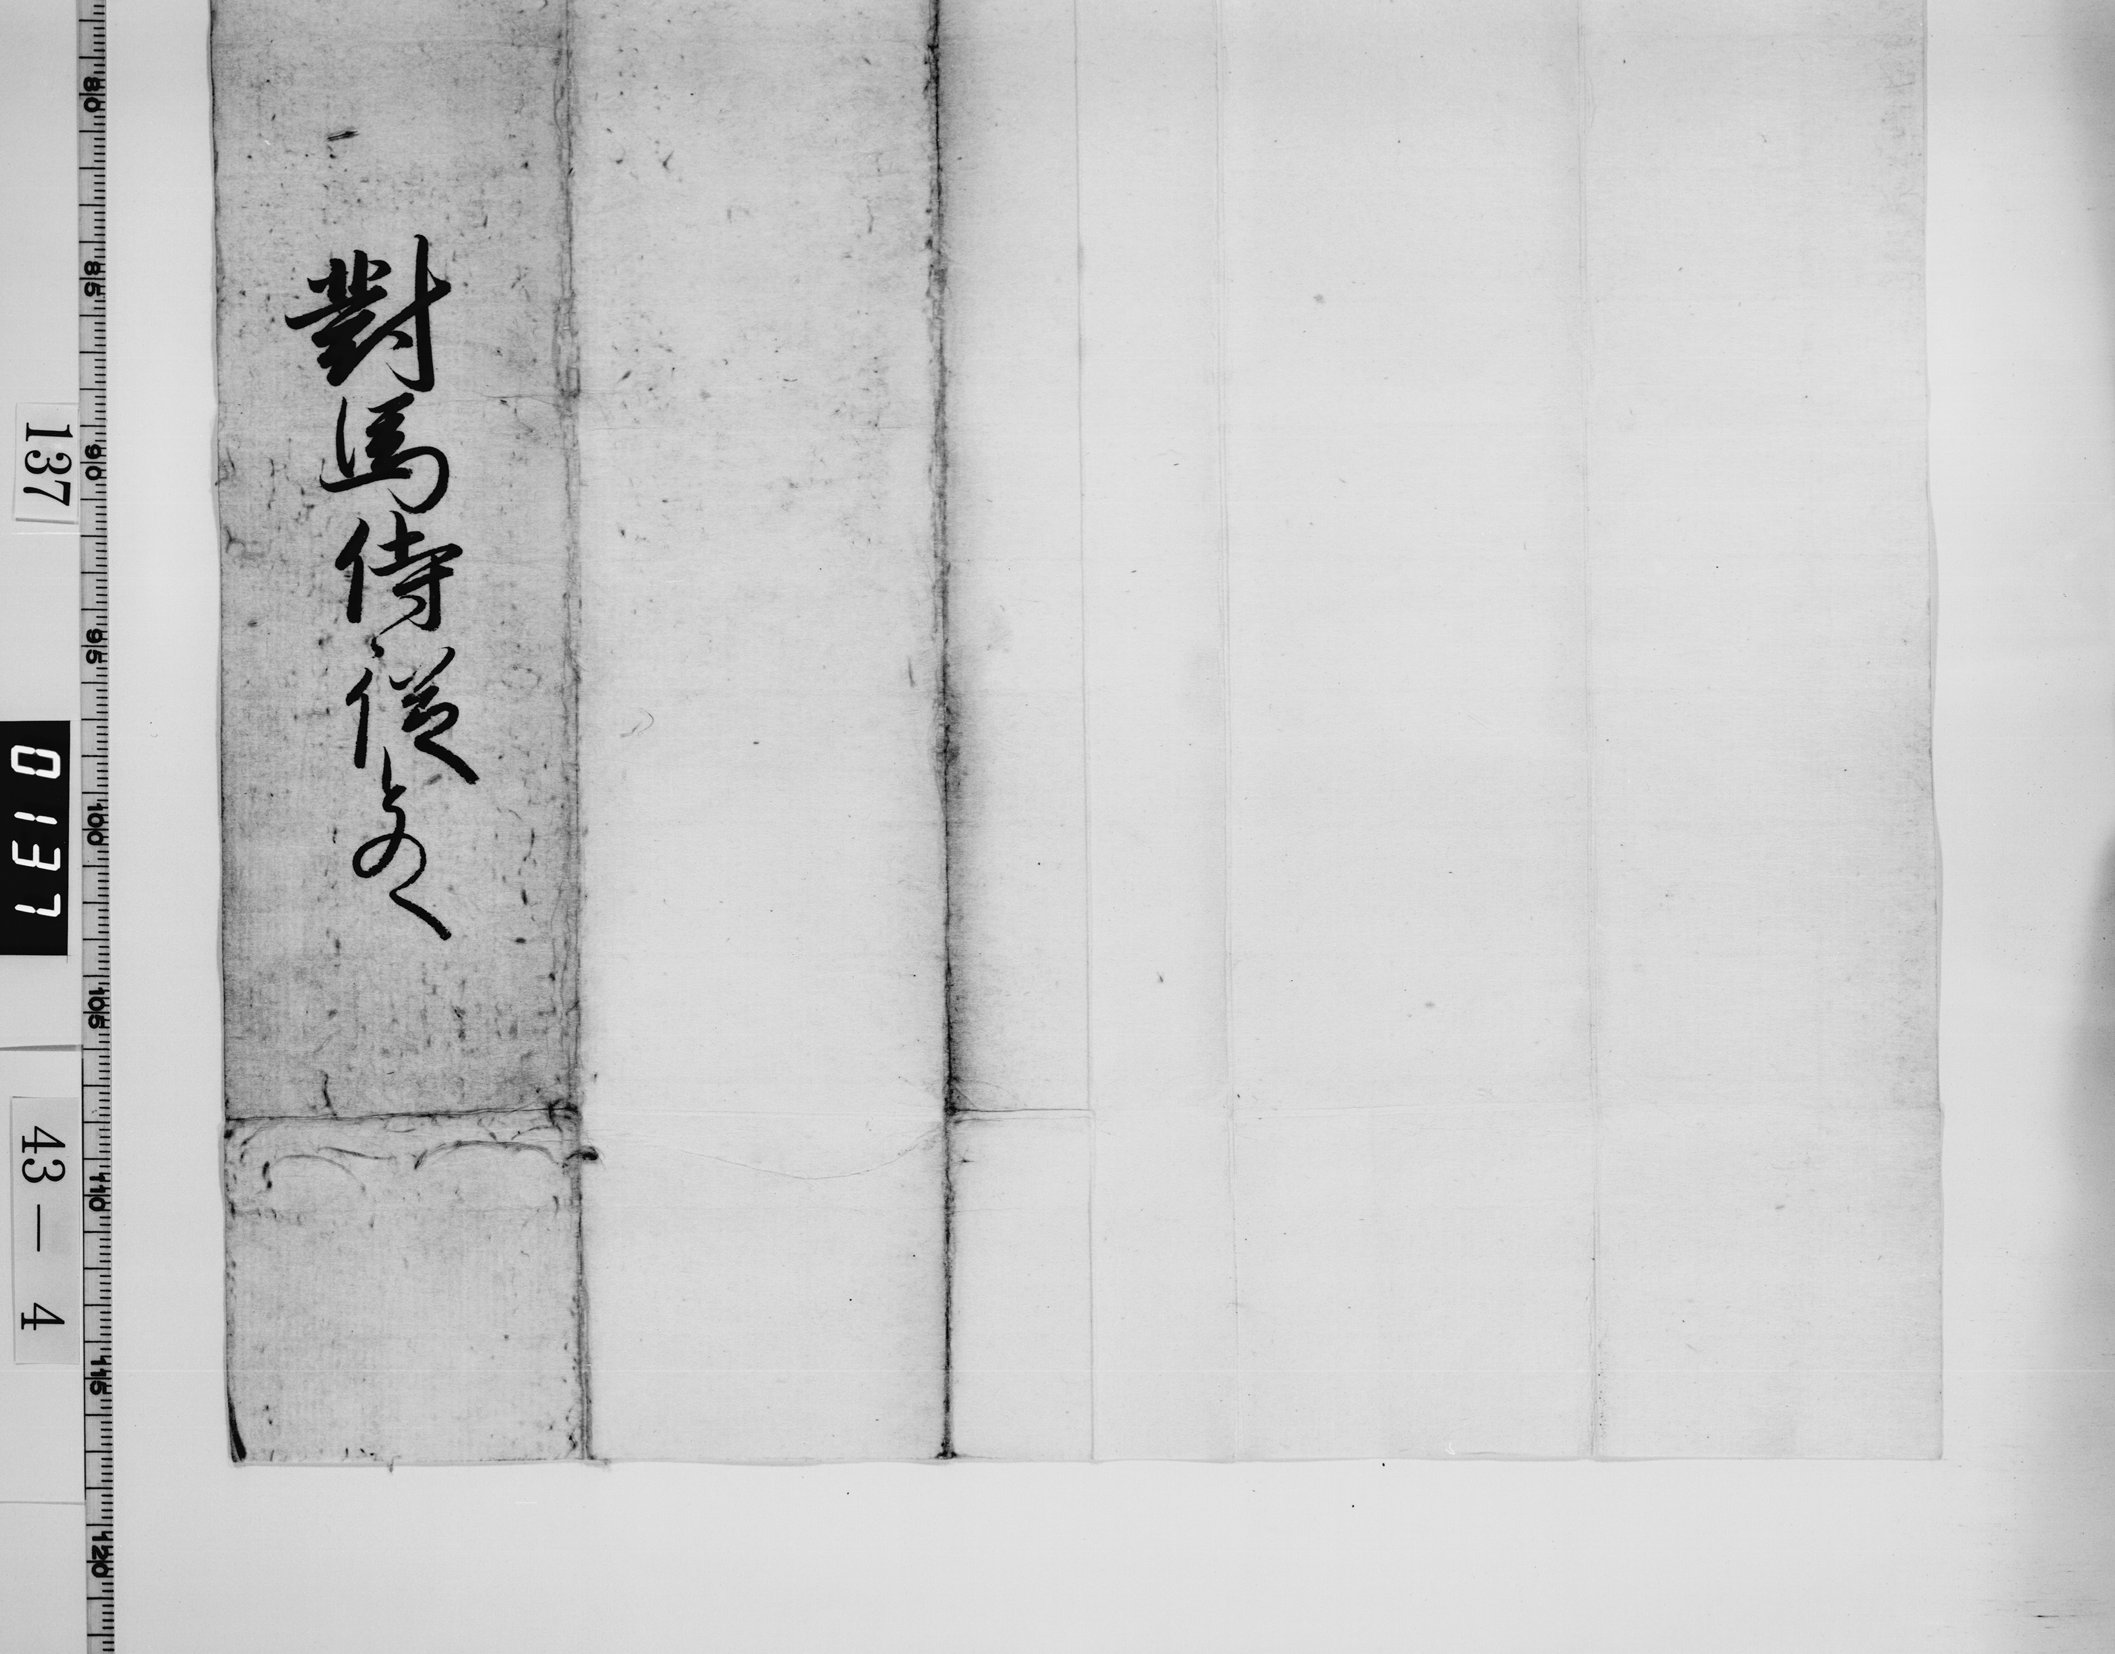 對馬侍従殿
137
0137
43－4
80
85
90
95
100
105
110
115
120